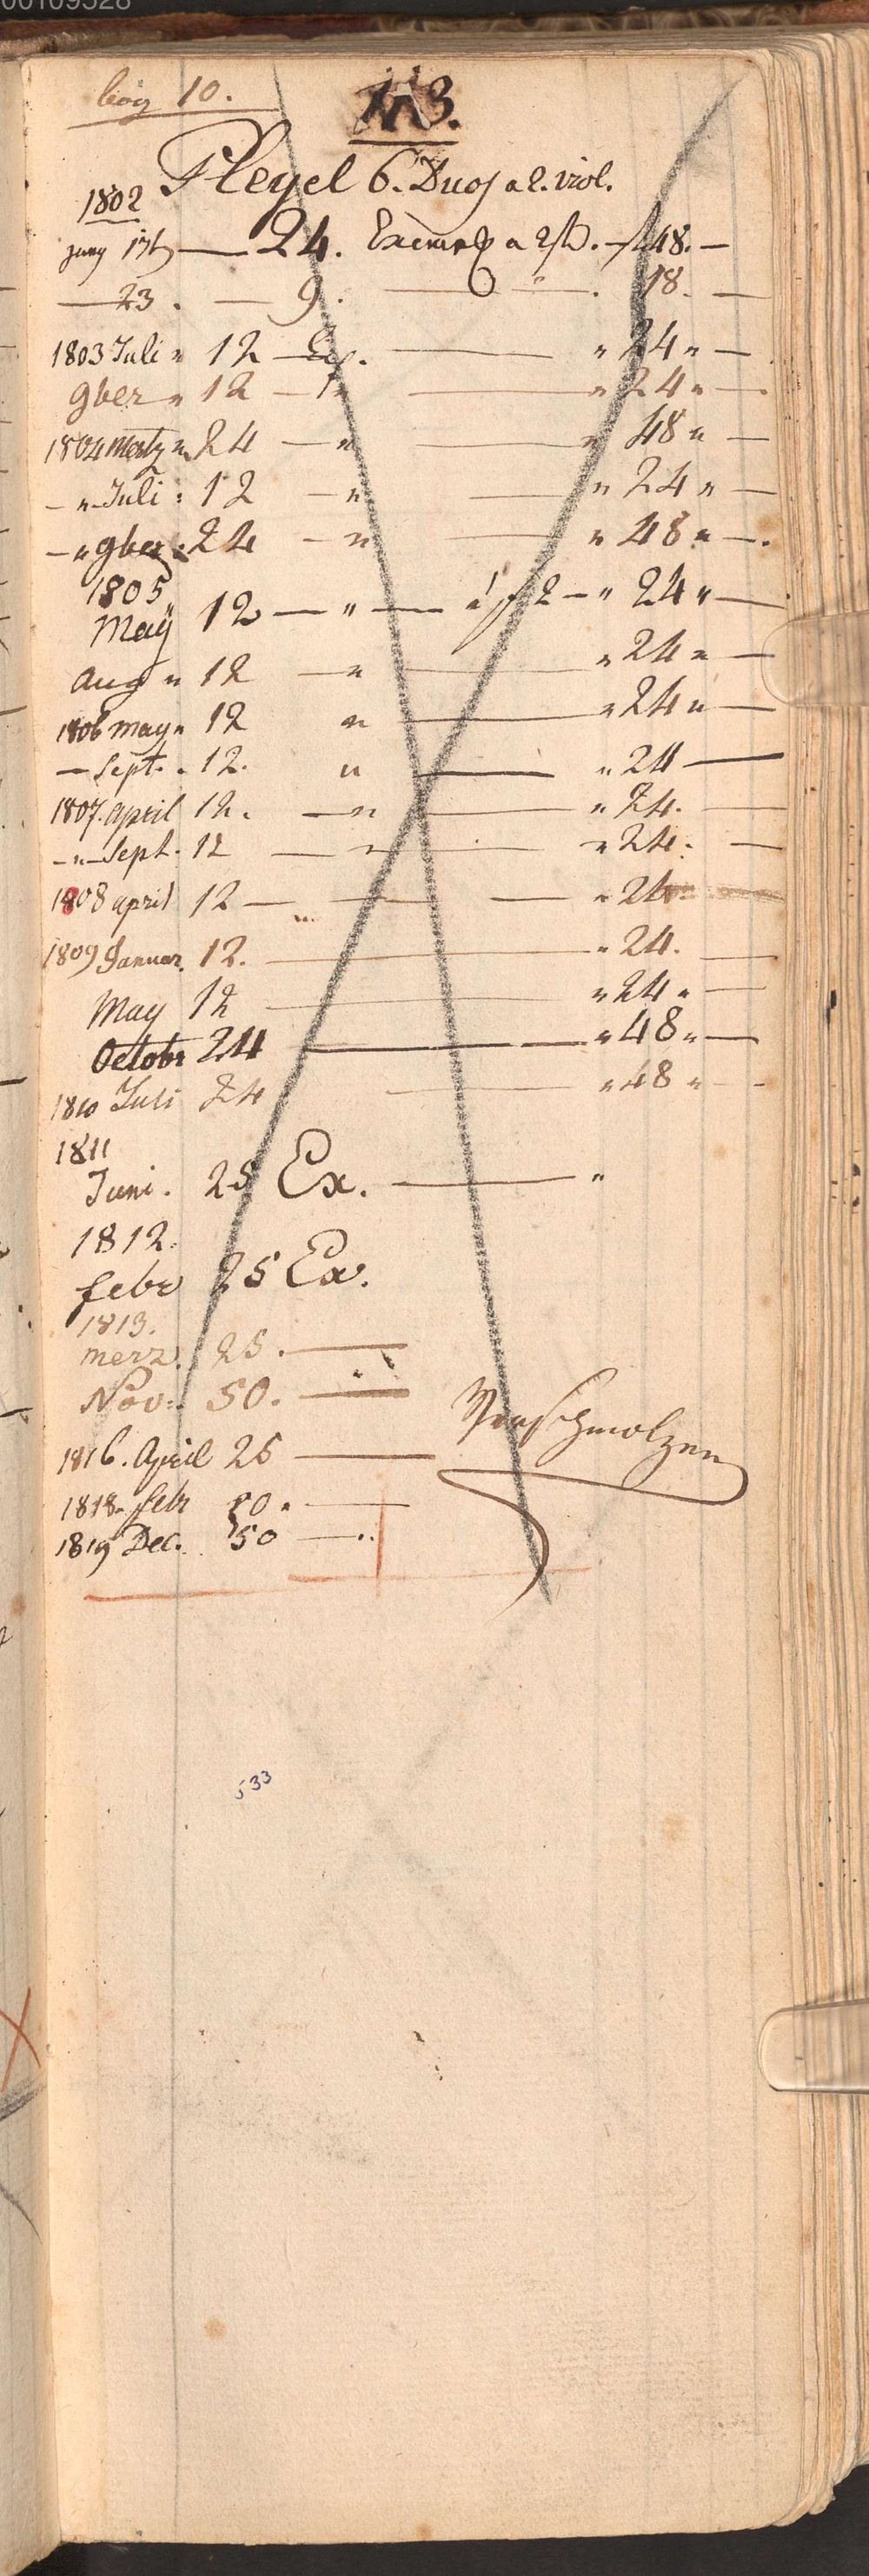 00109528
bog 10.
113.
Pleyel 6. Duos a 2. viol.
1802
juny 17t — 24. Exempl a 2 f. — f 48. —
— 23. — 9. — " . 18. —
1803 Juli " 12 — Ex. — " 24 " —
9ber " 12 — " — " 24 " —
1804 Mertz " 24 — " — " 48 " —
— " Juli : 12 — " — " 24 " —
— " 9ber : 24 — " — " 48 " —.
1805
May 12 — " — á f 2 — " 24 " —
Aug " 12 — " — " 24 " —
1806 may " 12 " — " 24 " —
— Sept. " 12. " — " 24 —
1807. april 12. — " — " 24. —
— " — Sept. 12 — " — " 24. —
1808 april 12 — " — — " 24.
1809 Januar. 12. — " 24. —
May 12 — " 24 " —
Octobr 24 — " 48 " —
1810 Juli 24 — " 48 " —
1811
Juni. 25 Ex. — "
1812.
febr 25 Ex.
1813.
merz. 25. —
Nov: 50. —
Verschmolzen
1816. April 25 —
1818. febr 50. —
1819 Dec. 50 — ..
533